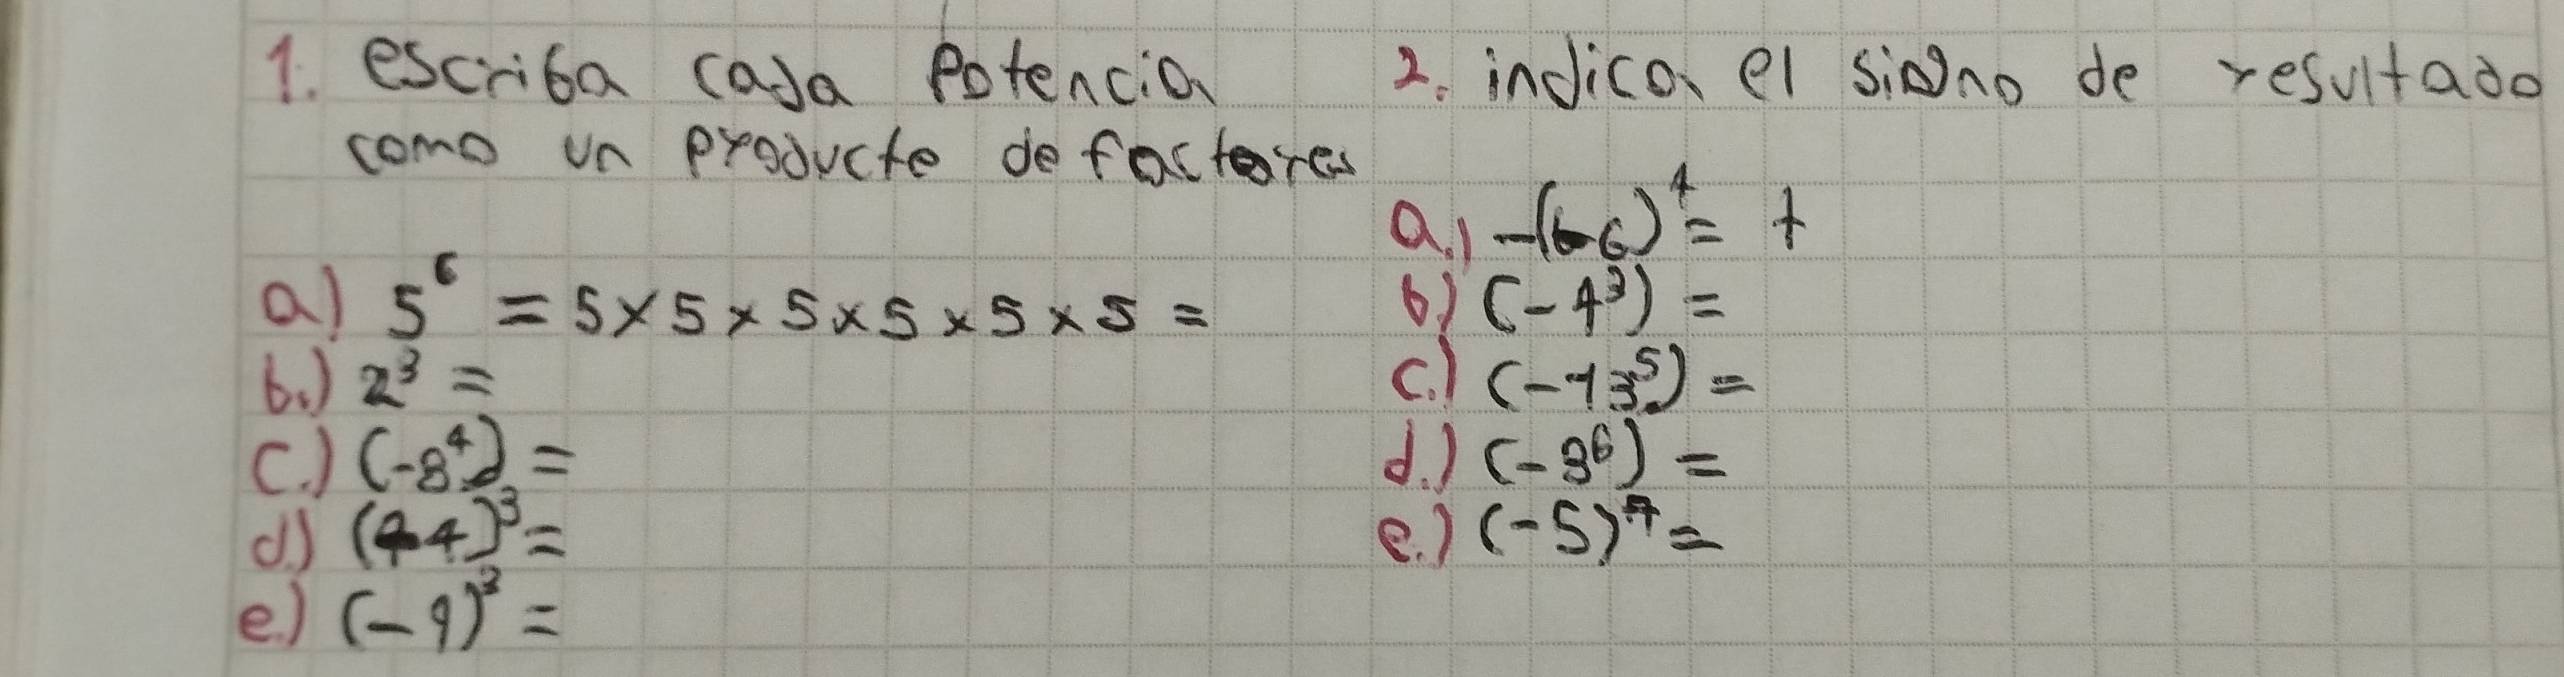 1. escriba cada Potencia
como un producte de factores
a) 5⁶ = 5 x 5 x 5 x 5 x 5 x 5 =
b.) 2³ =
c.) (-8⁴) =
d.) (-4)³ =
e.) (-9)³ =
2. indica el signo de resultado
a.) -(-6)⁴ = +
b) (-4³) =
c.) (-13⁵) =
d.) (-3⁶) =
e.) (-5)⁷ =